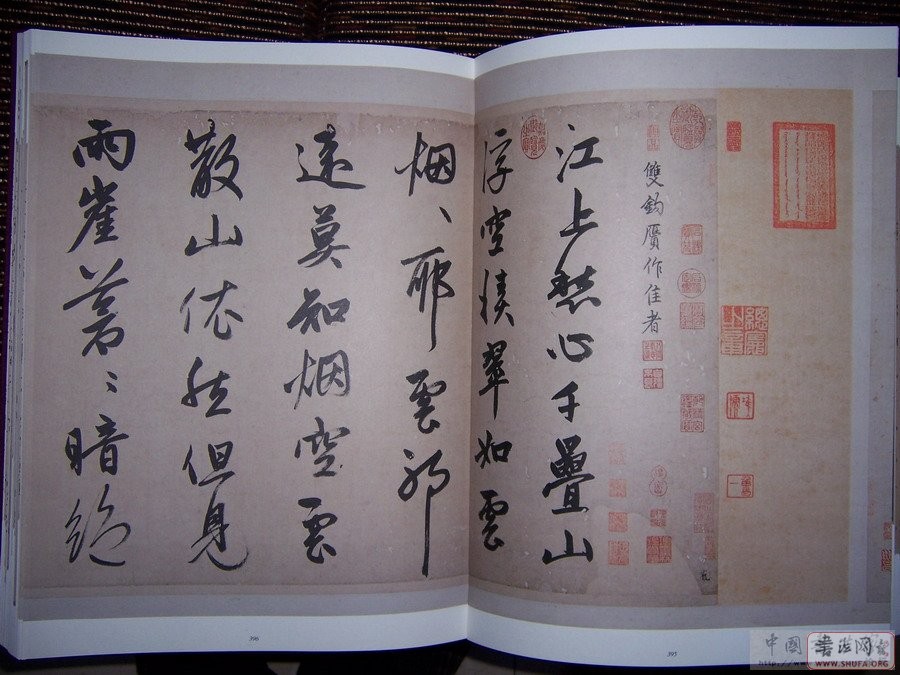 雙鈎贋作佳者
江上愁心千疊山
浮空積翠如雲
烟、耶雲耶
遠莫知烟空雲
散山依然但見
兩崖蒼〻暗絕
395
396
中國書法网
WWW.SHUFA.ORG